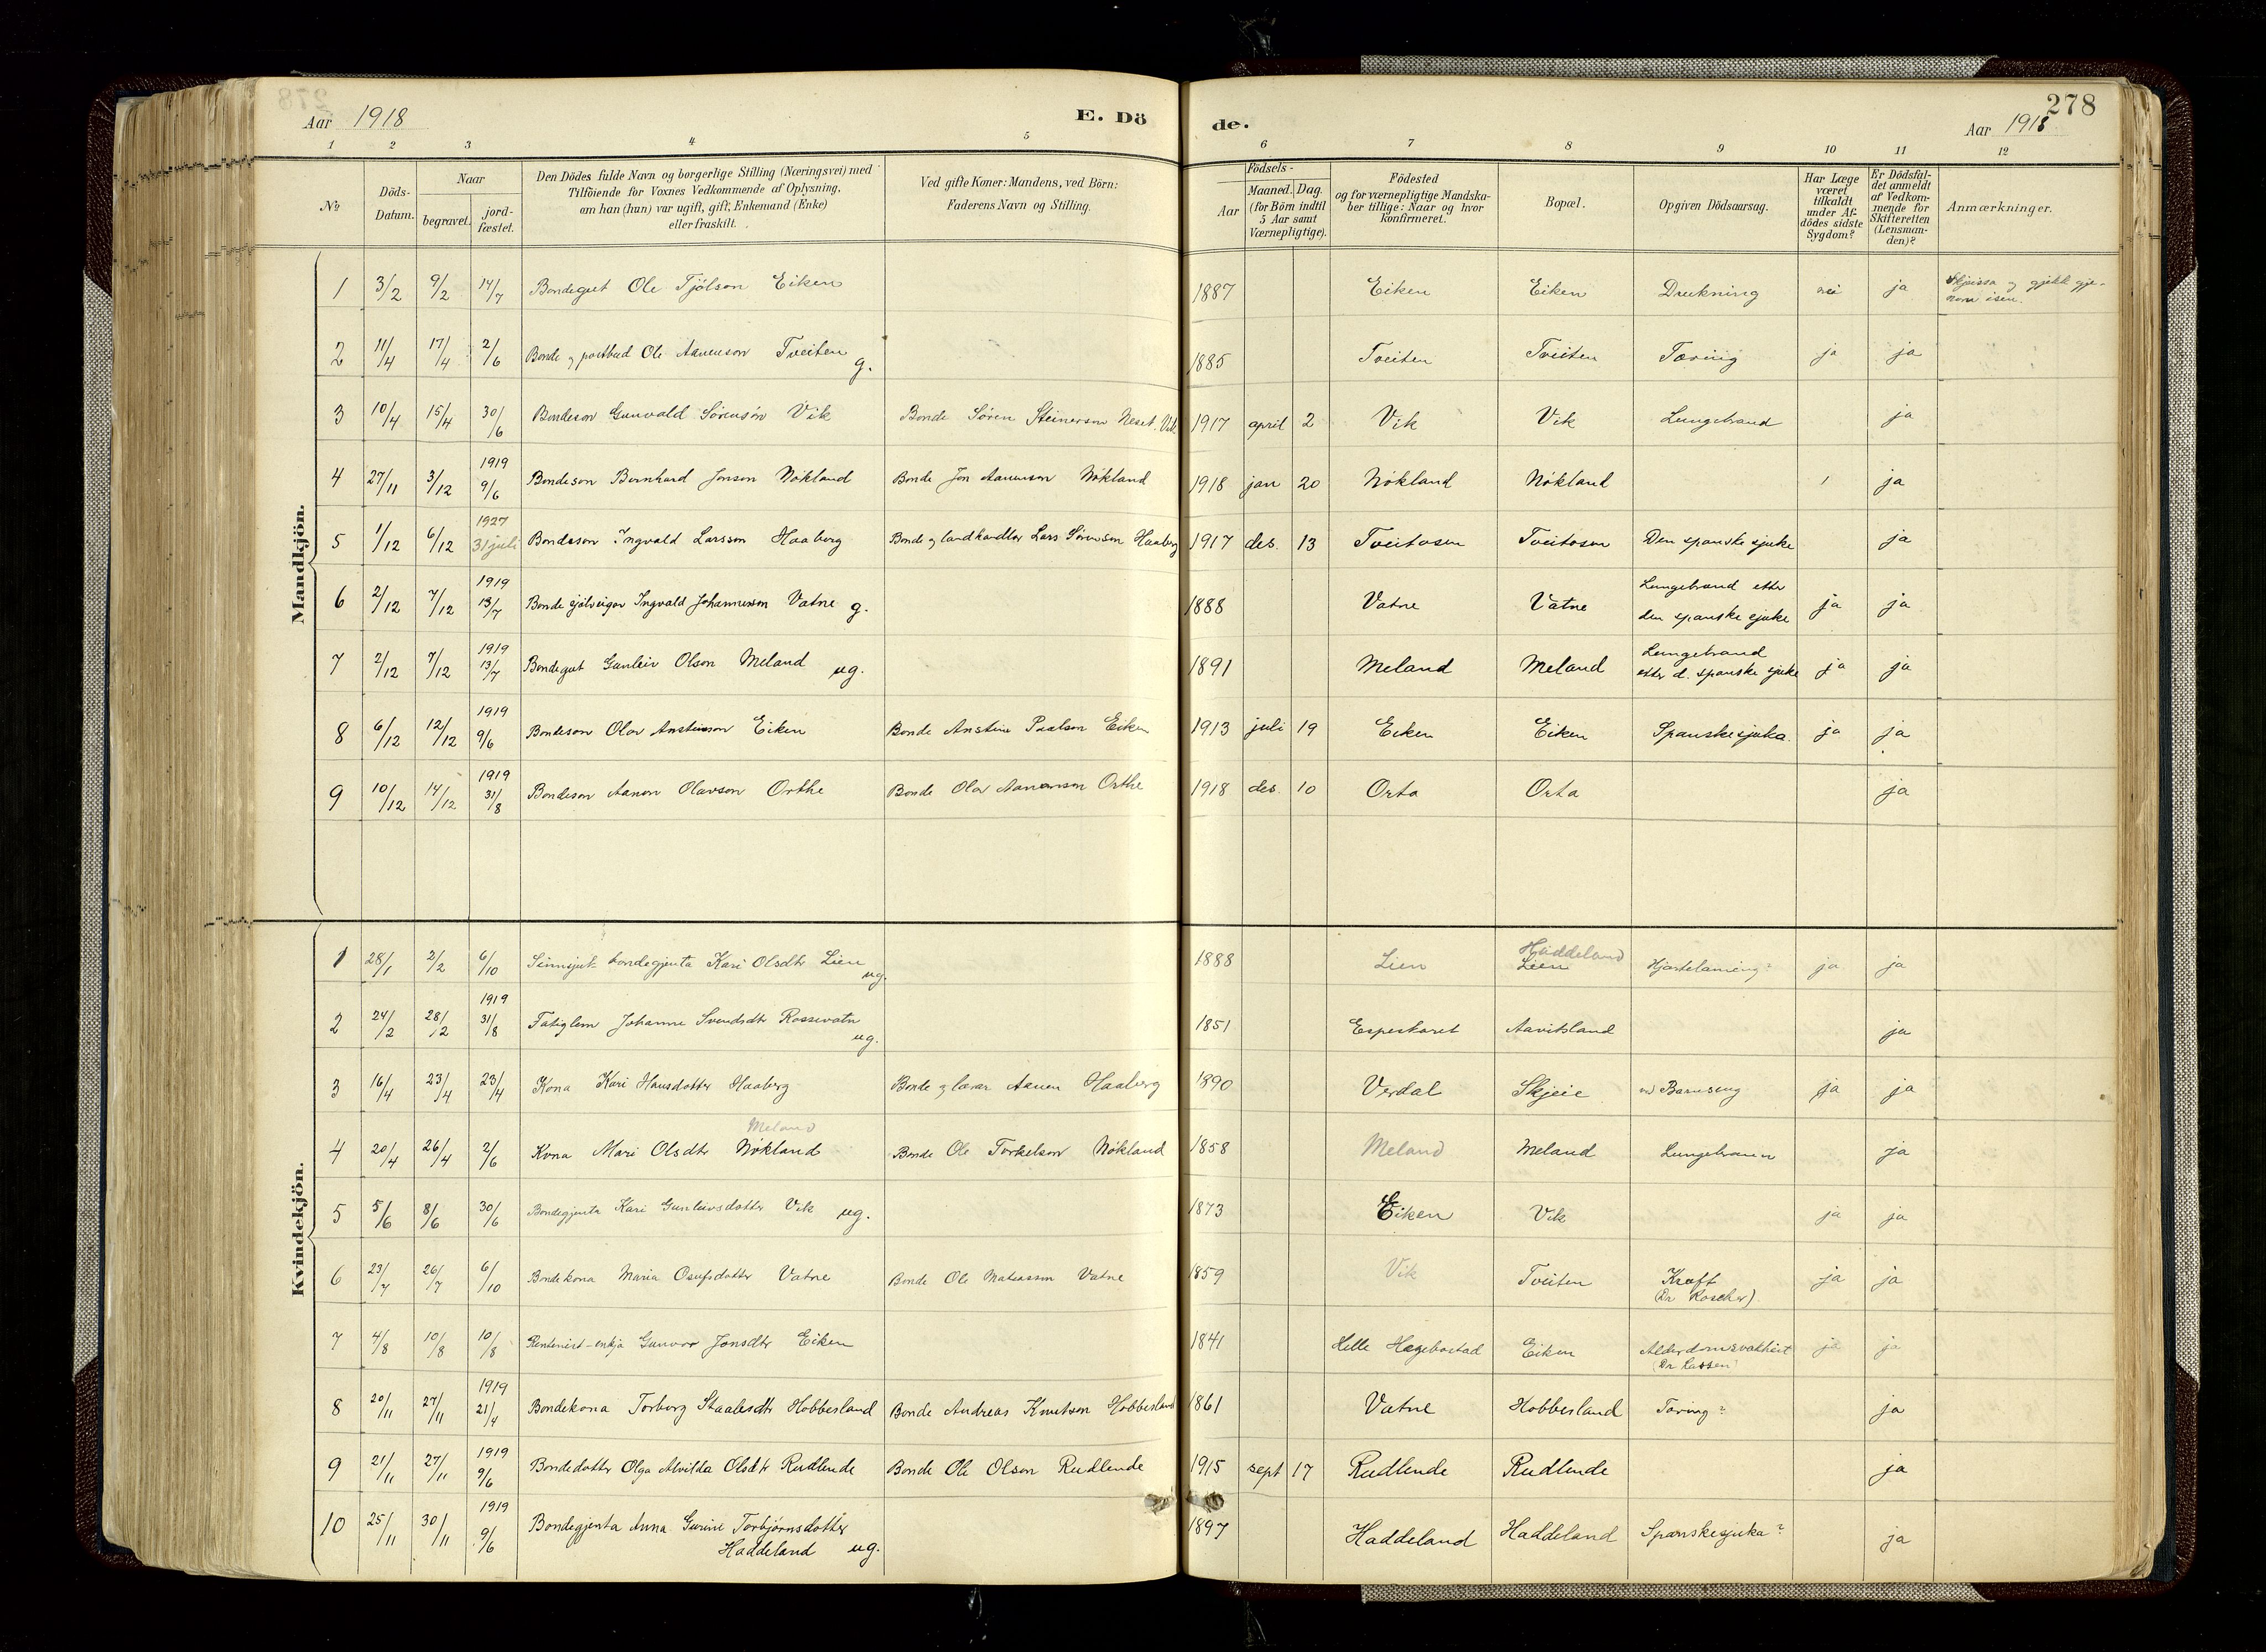 278
Aar 1918 E. Dö de. Aar 1918
1 2 3 4 5 6 7 8 9 10 11 12
№ Döds-Datum. Naar begravet. jord-fæstet. Den Dödes fulde Navn og borgerlige Stilling (Næringsvei) med Tilföiende for Voxnes Vedkommende af Oplysning, om han (hun) var ugift, gift, Enkemand (Enke) eller fraskilt. Ved gifte Koner: Mandens, ved Börn: Faderens Navn og Stilling. Födsels- Aar Maaned. Dag. (for Börn indtil 5 Aar samt Værnepligtige). Födested og for værnepligtige Mandska-ber tillige: Naar og hvor konfirmeret. Bopæl. Opgiven Dödsaarsag. Har Læge været tilkaldt under Af-dödes sidste Sygdom? Er Dödsfal-det anmeldt af Vedkom-mende for Skifteretten (Lensman-den)? Anmærkninger.
Mandkjön.
1 3/2 9/2 14/7 Bondegut Ole Tjölson Eiken 1887 Eiken Eiken Drukning nei ja Skjeissa og gjekk gje-nom isen.
2 11/4 17/4 2/6 Bonde og postbud Ole Aanenson Tveiten g. 1885 Tveiten Tveiten Tæring ja ja
3 10/4 15/4 30/6 Bondeson Gunvald Sörenson Vik Bonde Sören Steinerson Neset. Vik 1917 april 2 Vik Vik Lungebrand ja
4 27/11 3/12 1919 9/6 Bondeson Bernhard Jonson Nökland Bonde Jon Aanenson Nökland 1918 jan 20 Nökland Nökland ja
5 1/12 6/12 1927 31 juli Bondeson Ingvald Larsson Haaberg Bonde og landhandlar Lars Sörenson Haaberg 1917 des. 13 Tveitosen Tveitosen Den spanske sjuke ja
6 2/12 7/12 1919 13/7 Bonde sjölveigar Ingvald Johannesson Vatne g. 1888 Vatne Vatne Lungebrand etter den spanske sjuke ja ja
7 2/12 7/12 1919 13/7 Bondegut Gunleiv Olson Meland ug. 1891 Meland Meland Lungebrand etter d. spanske sjuke ja ja
8 6/12 12/12 1919 9/6 Bondeson Olav Ansteinson Eiken Bonde Anstein Paalson Eiken 1913 juli 19 Eiken Eiken Spanskesjuka. ja ja
9 10/12 14/12 1919 31/8 Bondeson Aanen Olavson Orthe Bonde Olav Aanenson Orthe 1918 des. 10 Orta Orta ja
Kvindekjön.
1 28/1 2/2 6/10 Sinnsjuk bondegjenta Kari Olsdtr Lien ug. 1888 Lien Haddeland Lien Hjartelaming? ja ja
2 24/2 28/2 1919 31/8 Fatiglem Johanne Svendsdtr Rossevatn ug. 1851 Espeskaret Aavitsland ja
3 16/4 23/4 23/4 Kona Kari Hansdotter Haaberg Bonde og lærar Aanen Haaberg 1890 Verdal Skjeie Barnseng ja ja
4 20/4 26/4 2/6 Kona Mari Olsdtr Meland Nökland Bonde Ole Torkelson Nökland 1858 Meland Meland ja
5 5/6 8/6 30/6 Bondegjenta Kari Gunleivsdotter Vik ug. 1873 Eiken Vik ja ja
6 23/7 26/7 6/10 Bondekona Maria Osufsdotter Vatne Bonde Ole Vatne 1859 Vik Tveiten Kræft (Dr Roscher). ja ja
7 4/8 10/8 10/8 Rentenist-enkja Gunvor Jonsdtr Eiken 1841 Helle Hægebostad Eiken Alderdomsvakheit (Dr Lassen) ja ja
8 20/11 27/11 1919 21/4 Bondekona Torborg Staalesdtr Hobbesland Bonde Andreas Knutson Hobbesland 1861 Vatne Hobbesland Tæring? ja
9 21/11 27/11 1919 9/6 Bondedotter Olga Alvilda Olsdtr Rudlende Bonde Ole Olson Rudlende 1915 sept 17 Rudlende Rudlende ja
10 25/11 30/11 1919 9/6 Bondegjenta Anna Gurine Torbjörnsdotter Haddeland ug. 1897 Haddeland Haddeland Spanskesjuka? ja